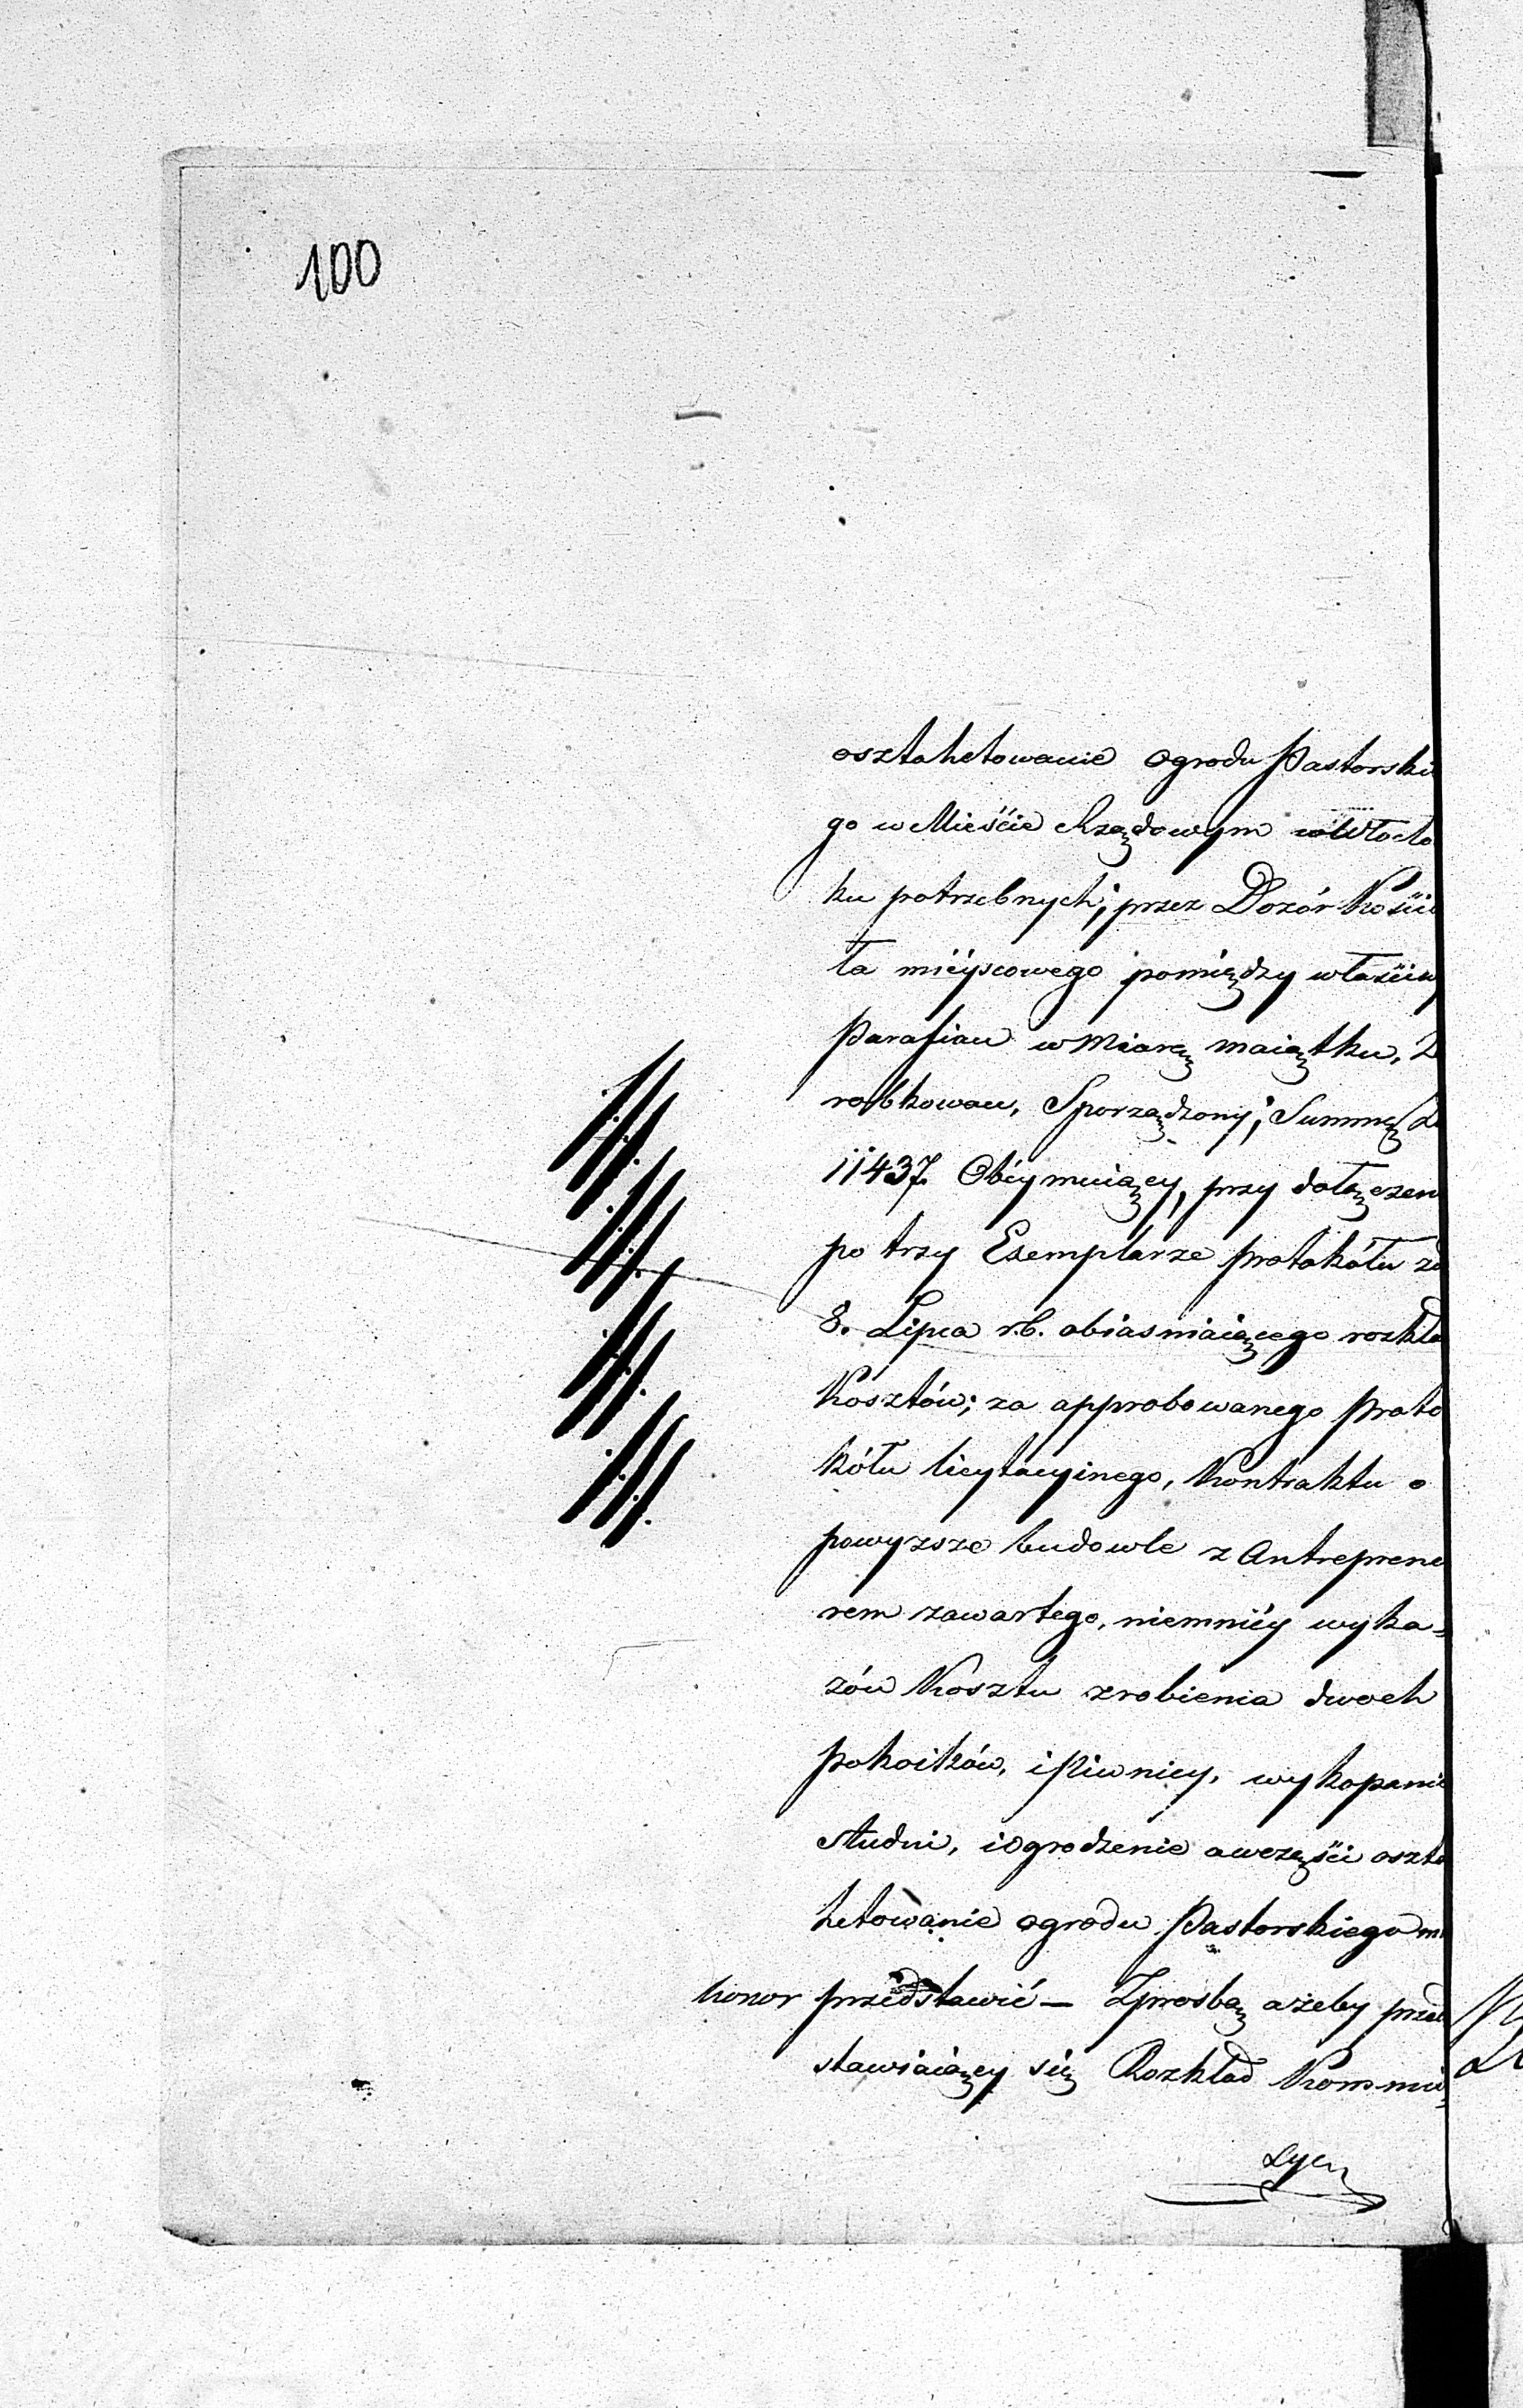 100
osztahetowanie ogrodu Pastorski
go w Mieście Rządowym w Włocła
ku potrzebnych; przez Dozór Kości
ła mieyscowego pomiędzy właściw
Parafian w miarę maiątku, Z
robkowan, Sporządzony; Summę Z
11437. Obeymuiący, przy dołączen
po trzy Exemplarze protokółu zd
8. Lipca r.b. obiasniaiącego rozkła
Kosztów; za approbowanego Proto
kółu licytacyinego, Kontraktu o
powyzsze budowle z Antreprene
rem zawartego, niemniéy wyka=
zów Kosztu zrobienia dwoch
pokoików, i Piwnicy, wykopanie
studni, i ogrodzenie a wczęści oszta
hetowanie ogrodu Pastorskiego m
honor przedstawić — Z prosbą ażeby przed
stawiaiący się Rozkład Kommis=